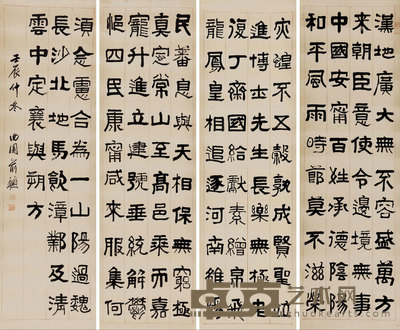 漢地廣大無不容盛萬方
來朝臣妾使令邊竟無事
中國安甯百姓承德陰陽
和平風雨時節莫不滋榮
灾蝗不起五穀孰成賢聖並
進博士先生長樂無極老
復丁齊國給獻素繒帛飛
龍鳳皇相追逐河南雒陽
民蕃息與天相保無窮極
真定常山至高邑乘而嘉
寵升進立建號垂統解鬱
悒四民康甯咸來服集何
須念慮合為一山陽過魏
長沙北地馬飲漳鄴及清
雲中定襄與朔方
壬辰仲冬 曲園俞樾